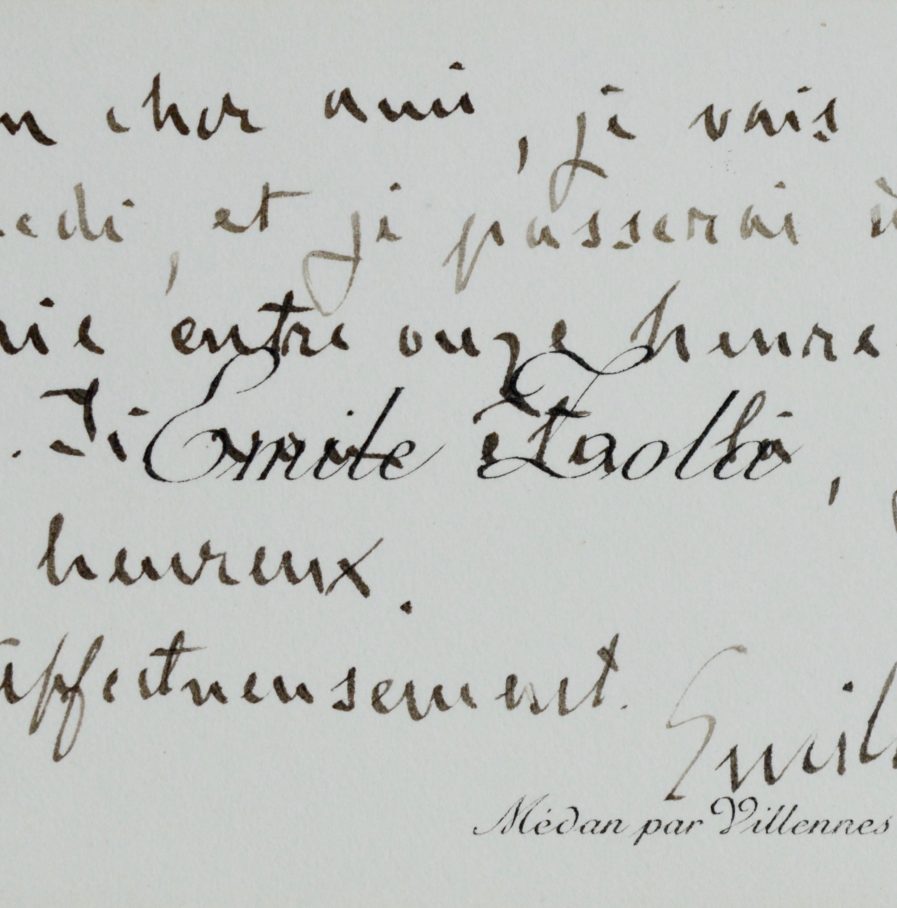 n cher ami, je vais
edi, et je passerai à
nie entre onze heure
. Si vous êtes là,
Emile Zola
heureux.
affectueusement.
Emil
Médan par Villennes